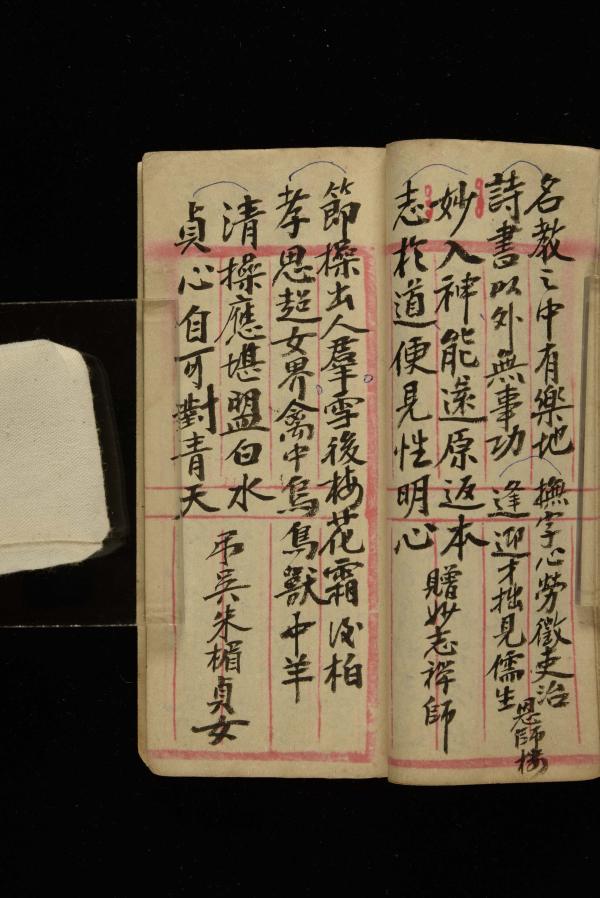 名教之中有樂地　撫字心勞徵吏治
詩書以外無事功　逢迎才拙見儒生
恩師樓
妙入神能還原返本
志於道便見性明心
贈妙志禪師
節操出人羣雪後梅花霜後柏
孝思超女界禽中烏鳥獸中羊
清操應堪盟白水
貞心自可對青天
弔吳朱楣貞女